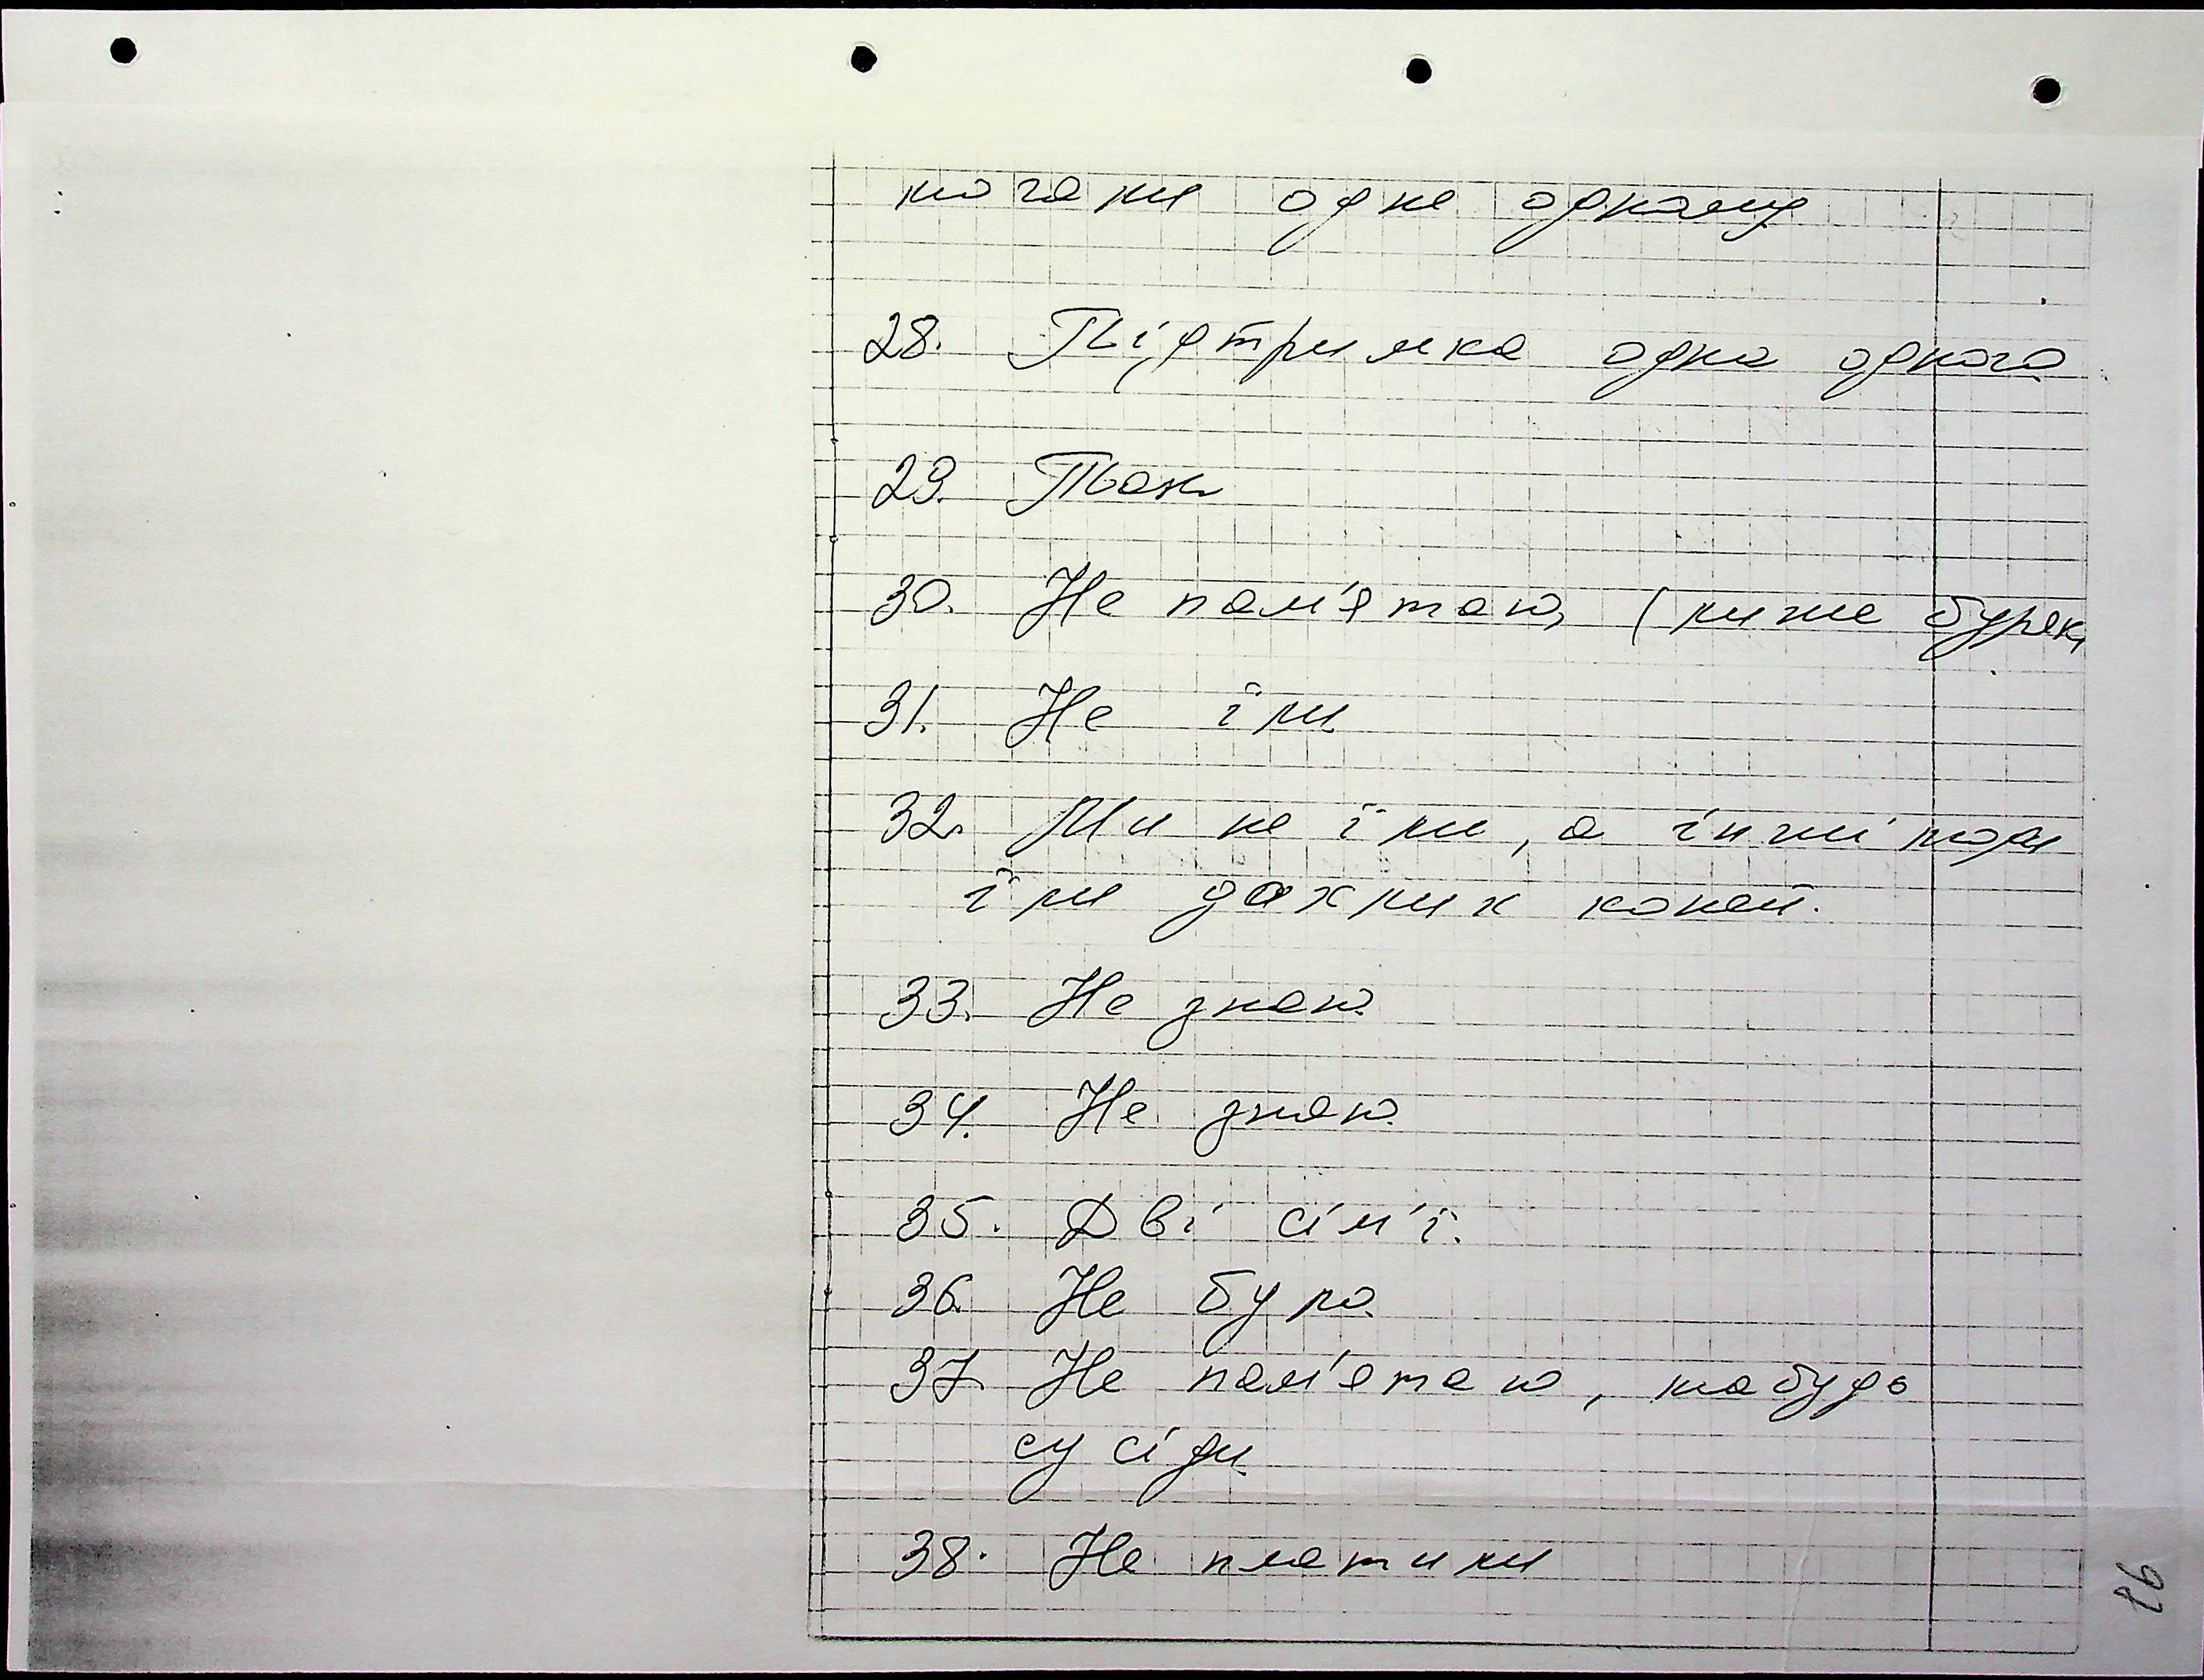 могали одне одному
28. Підтримка одна одного
29. Так
30. Не пам'ятаю, (лише буряки
31. Не їли.
32. Ми не їли, а інші люди
їли дохлих коней.
33. Не знаю.
34. Не знаю.
35. Дві сім'ї.
36. Не було.
37. Не пам'ятаю, мабудь
сусіди.
38. Не платили